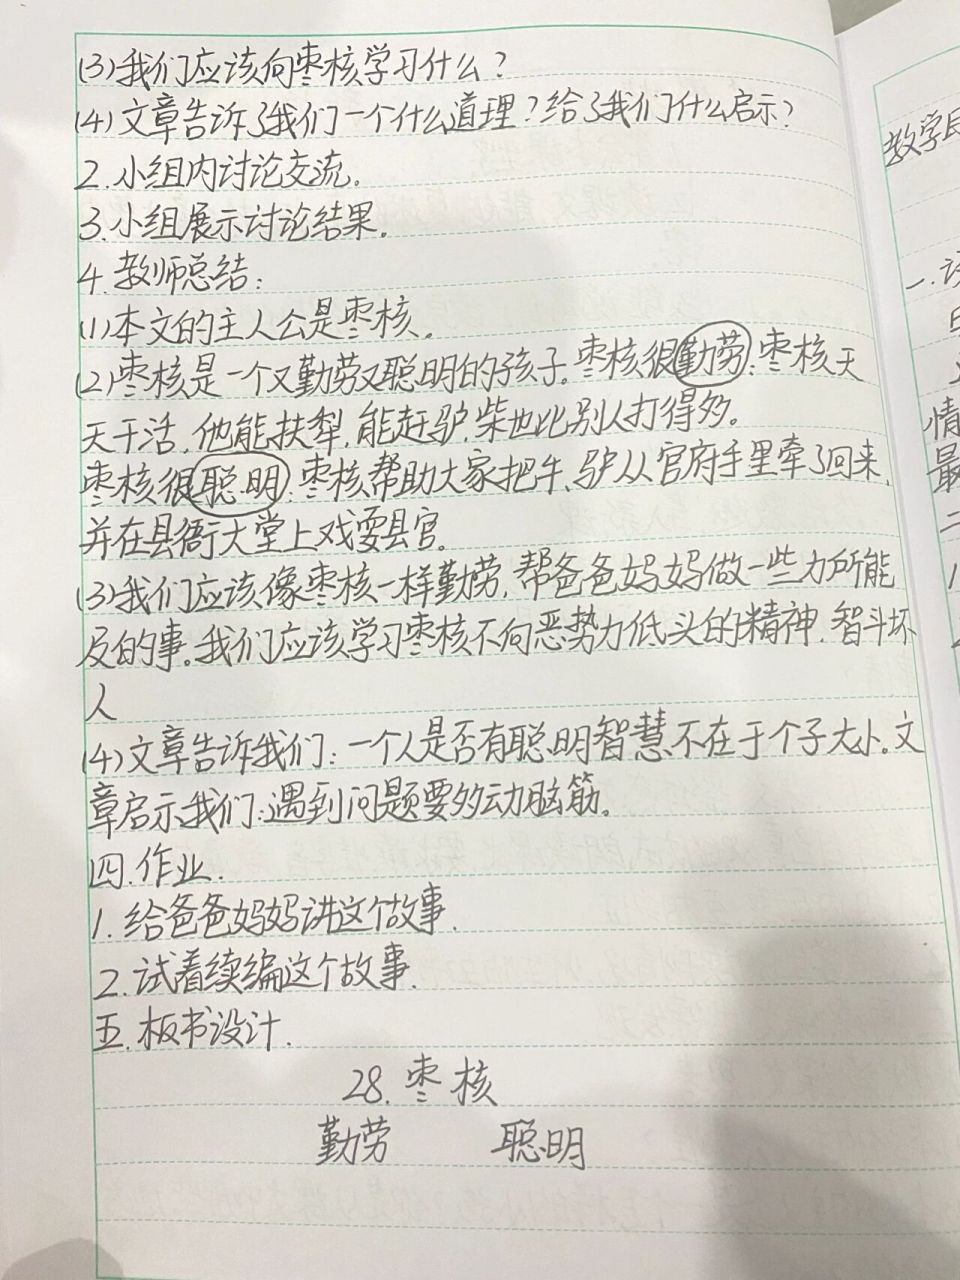 (3)我们应该向枣核学习什么？
(4)文章告诉了我们一个什么道理？给了我们什么启示？
2.小组内讨论交流。
3.小组展示讨论结果。
4.教师总结：
(1)本文的主人公是枣核。
(2)枣核是一个又勤劳又聪明的孩子。枣核很勤劳：枣核天
天干活，他能扶犁，能赶驴，柴也比别人打得多。
枣核很聪明：枣核帮助大家把牛、驴从官府手里牵了回来，
并在县衙大堂上戏耍县官。
(3)我们应该像枣核一样勤劳，帮爸爸妈妈做一些力所能
及的事。我们应该学习枣核不向恶势力低头的精神，智斗坏
人
(4)文章告诉我们：一个人是否有聪明智慧不在于个子大小。文
章启示我们：遇到问题要多动脑筋。
四.作业.
1.给爸爸妈妈讲这个故事.
2.试着续编这个故事.
五.板书设计.
28.枣核
勤劳 聪明
教学
一.
情
最
二
1